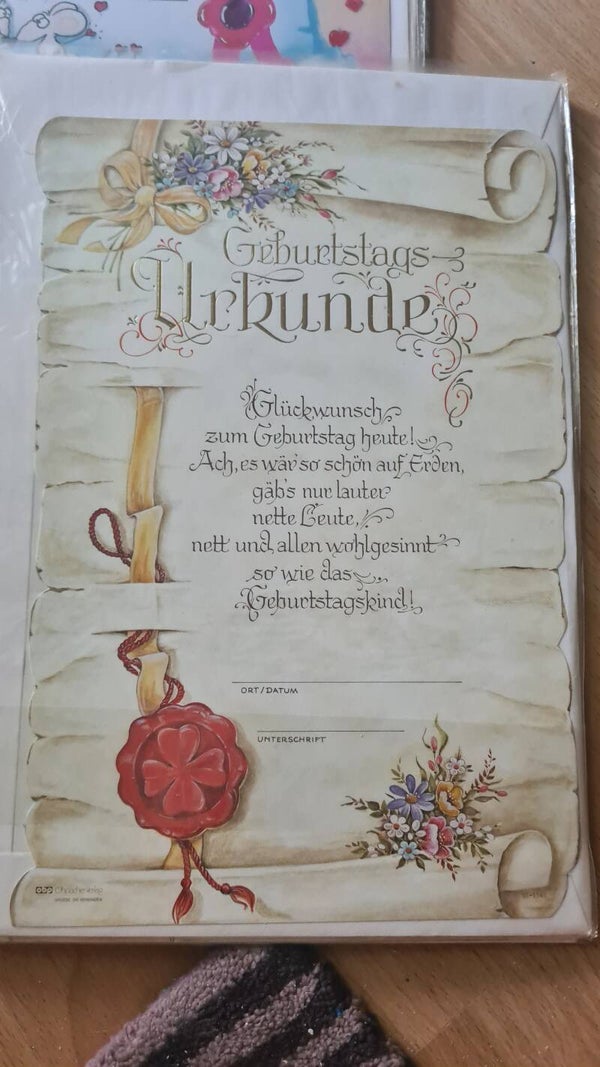 Geburtstags-
Urkunde
Glückwunsch
zum Geburtstag heute!
Ach, es wär' so schön auf Erden,
gäb's nur lauter
nette Leute,
nett und allen wohlgesinnt
so wie das
Geburtstagskind!
ORT/DATUM
UNTERSCHRIFT